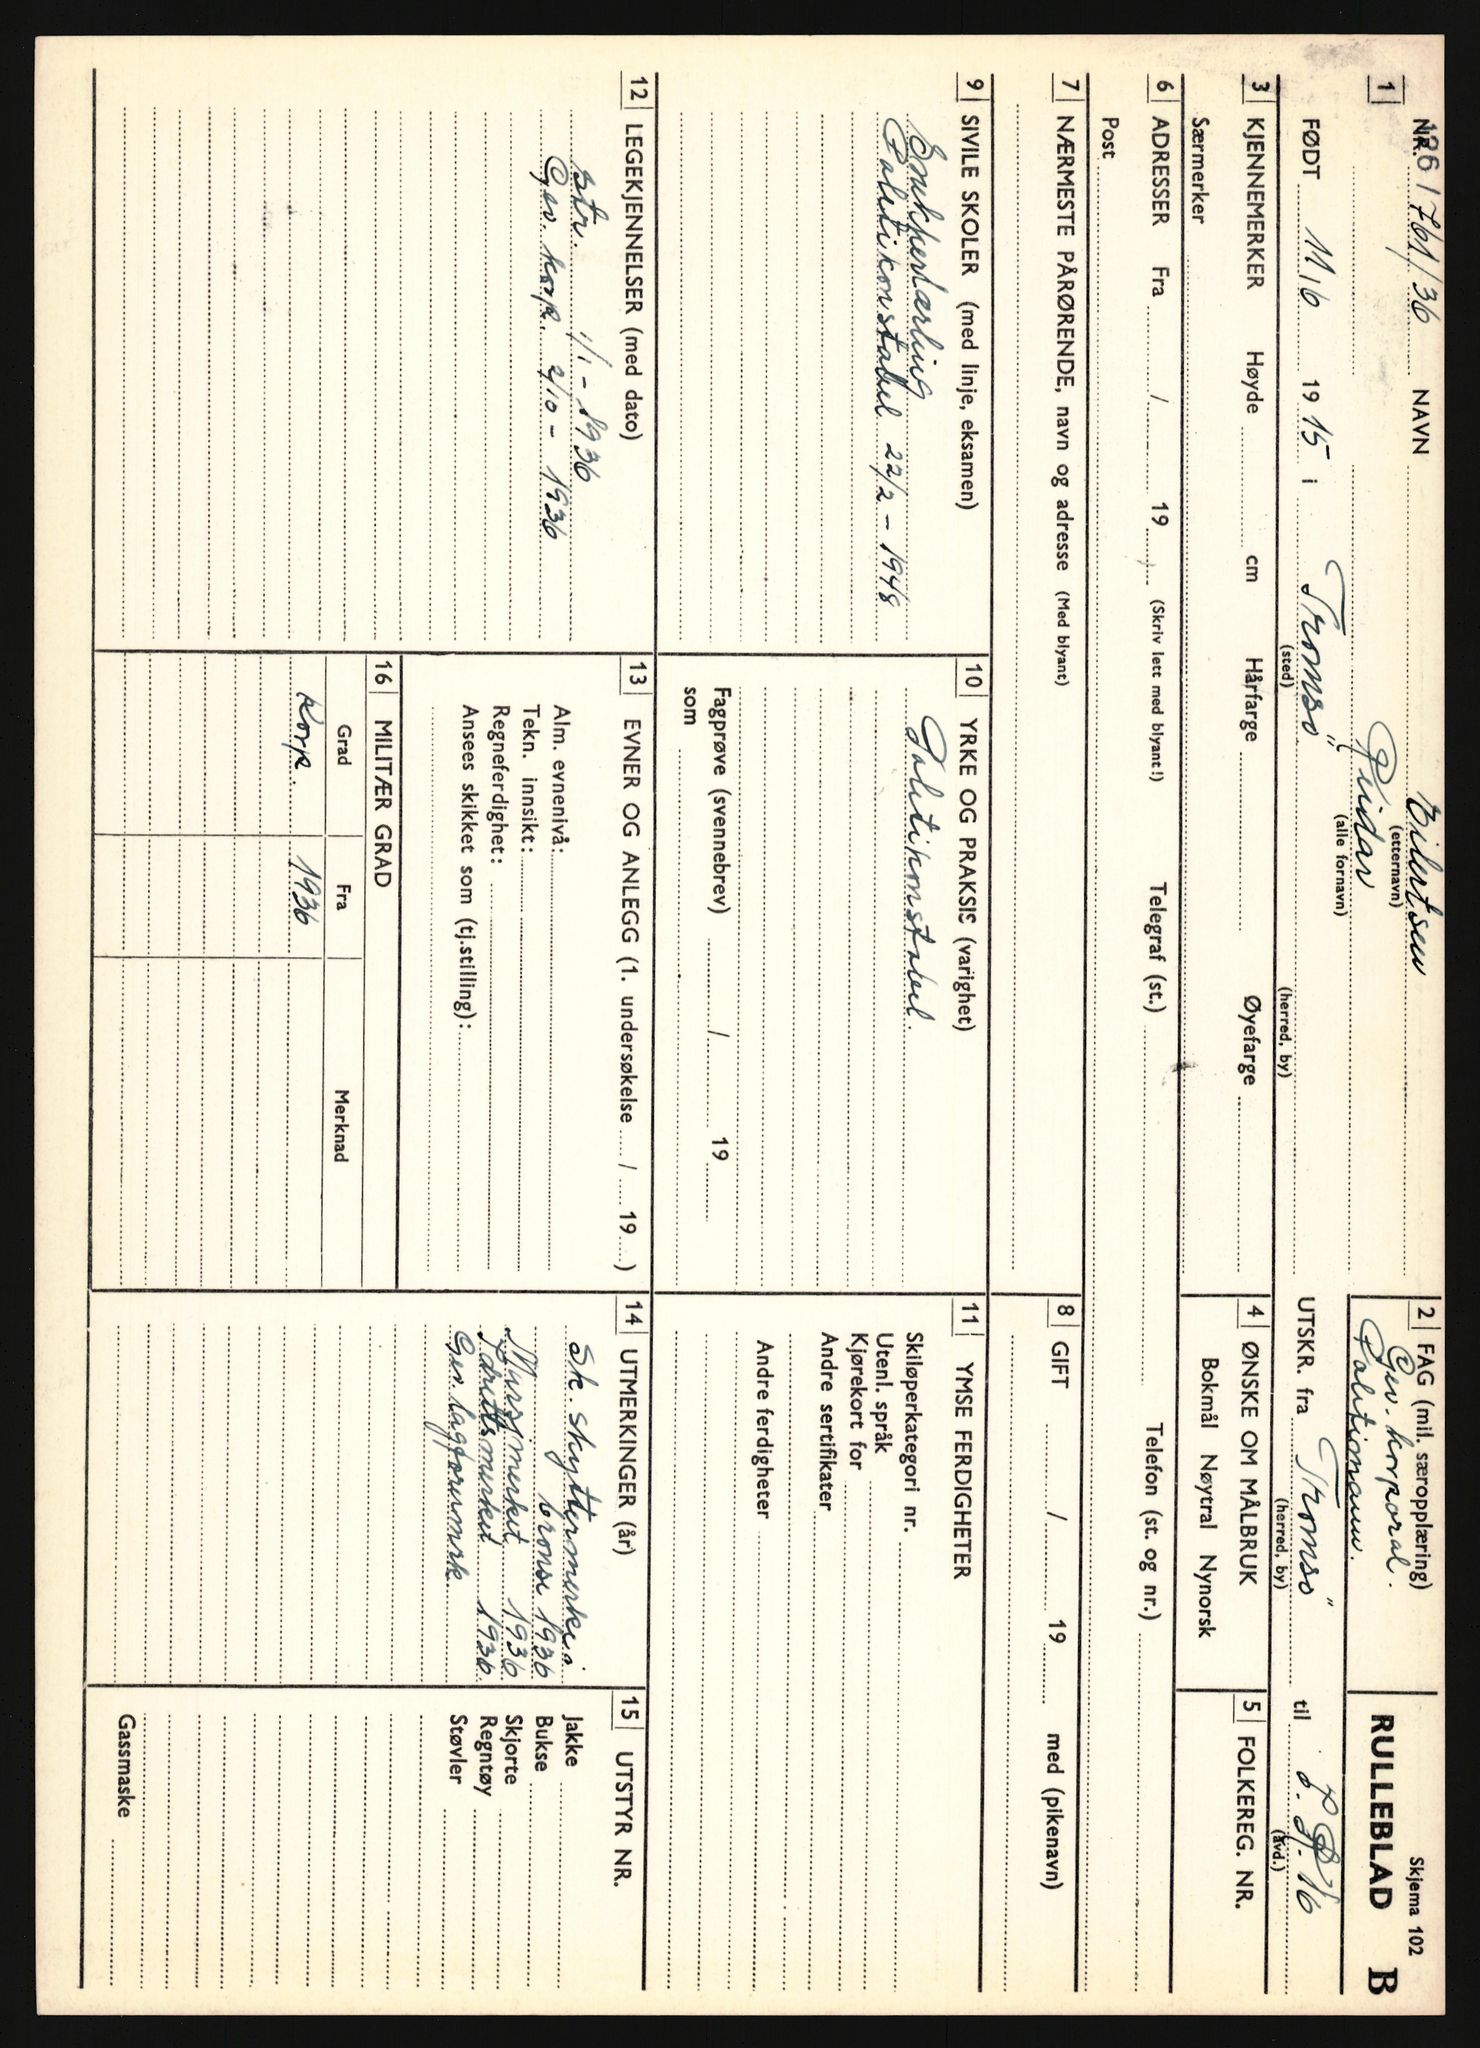 Skjema 102
NR. 126/761/36 NAVN Eilertsen
(etternavn)
Reidar
(alle fornavn)
1
2 FAG (mil. særopplæring)
Gev. korporal.
Politimann.
RULLEBLAD B
FØDT 11/6 1915 i Tromsö
(sted) (herred, by)
UTSKR. fra Tromsö til I.R. 16
(herred, by) (avd.)
3 KJENNEMERKER Høyde cm Hårfarge Øyefarge
Særmerker
4 ØNSKE OM MÅLBRUK
Bokmål Nøytral Nynorsk
5 FOLKEREG. NR.
6 ADRESSER Fra / 19 (Skriv lett med blyant!) Telegraf (st.) Telefon (st. og nr.)
Post
7 NÆRMESTE PÅRØRENDE, navn og adresse (Med blyant)
8 GIFT / 19 med (pikenavn)
9 SIVILE SKOLER (med linje, eksamen)
Snekkerlærling
Politikonstabel 22/2 - 1948
10 YRKE OG PRAKSIS (varighet)
Politikonstabel.
Fagprøve (svennebrev) / 19
som
11 YMSE FERDIGHETER
Skiløperkategori nr.
Utenl. språk
Kjørekort for
Andre sertifikater
Andre ferdigheter
12 LEGEKJENNELSER (med dato)
Str. 1/1 - 1936
Gev. korp. 2/10 - 1936
13 EVNER OG ANLEGG (1. undersøkelse / 19 )
Alm. evnenivå:
Tekn. innsikt:
Regneferdighet:
Ansees skikket som (tj.stilling):
14 UTMERKINGER (år)
Sk. skyttermerke i
bronse 1936
Marsjmerket 1936
Idrettsmerket 1936
Gev. lagførermrk.
15 UTSTYR NR.
Jakke
Bukse
Skjorte
Regntøy
Støvler
Gassmaske
16 MILITÆR GRAD
Grad Fra Merknad
Korp. 1936